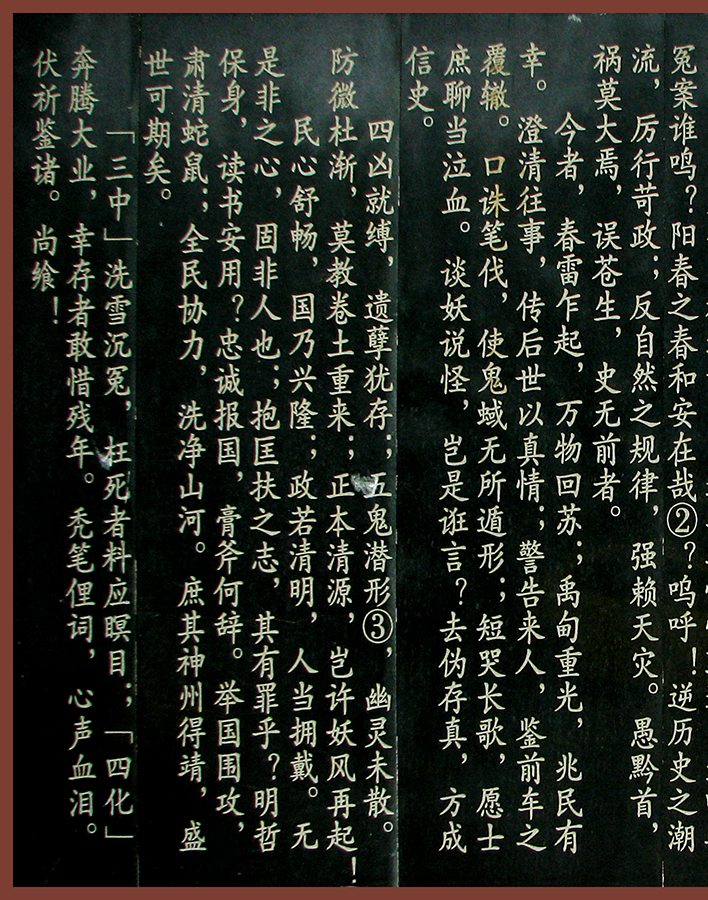 冤案谁鸣？阳春之春和安在哉②？呜呼！逆历史之潮
流，厉行苛政；反自然之规律，强赖天灾。愚黔首，
祸莫大焉，误苍生，史无前者。
今者，春雷乍起，万物回苏；禹甸重光，兆民有
幸。澄清往事，传后世以真情；警告来人，鉴前车之
覆辙。口诛笔伐，使鬼蜮无所遁形；短哭长歌，愿士
庶聊当泣血。谈妖说怪，岂是诳言？去伪存真，方成
信史。
四凶就缚，遗孽犹存；五鬼潜形③，幽灵未散。
防微杜渐，莫教卷土重来；正本清源，岂许妖风再起！
民心舒畅，国乃兴隆；政若清明，人当拥戴。无
是非之心，固非人也；抱匡扶之志，其有罪乎？明哲
保身，读书安用？忠诚报国，膏斧何辞。举国围攻，
肃清蛇鼠；全民协力，洗净山河。庶其神州得靖，盛
世可期矣。
「三中」洗雪沉冤，枉死者料应瞑目；「四化」
奔腾大业，幸存者敢惜残年。秃笔俚词，心声血泪。
伏祈鉴诸。尚飨！